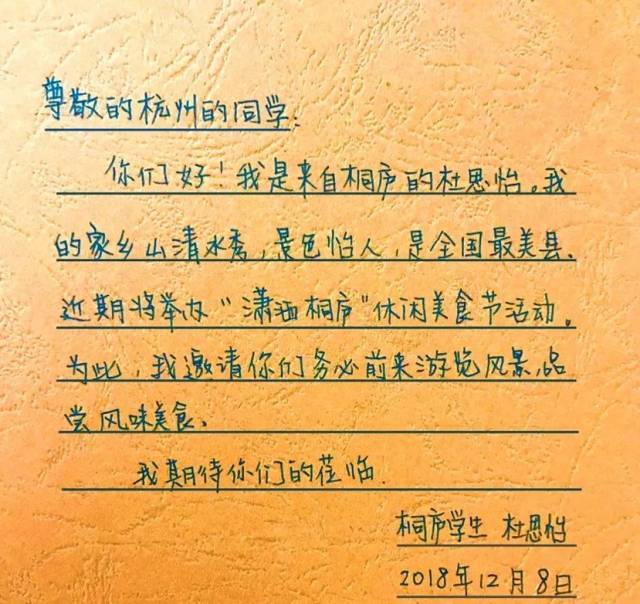 尊敬的杭州的同学:
你们好!我是来自桐庐的杜思怡。我
的家乡山清水秀,景色怡人,是全国最美县.
近期将举办“潇洒桐庐”休闲美食节活动。
为此,我邀请你们务必前来游览风景,品
尝风味美食.
我期待你们的莅临.
桐庐学生 杜思怡
2018年12月8日